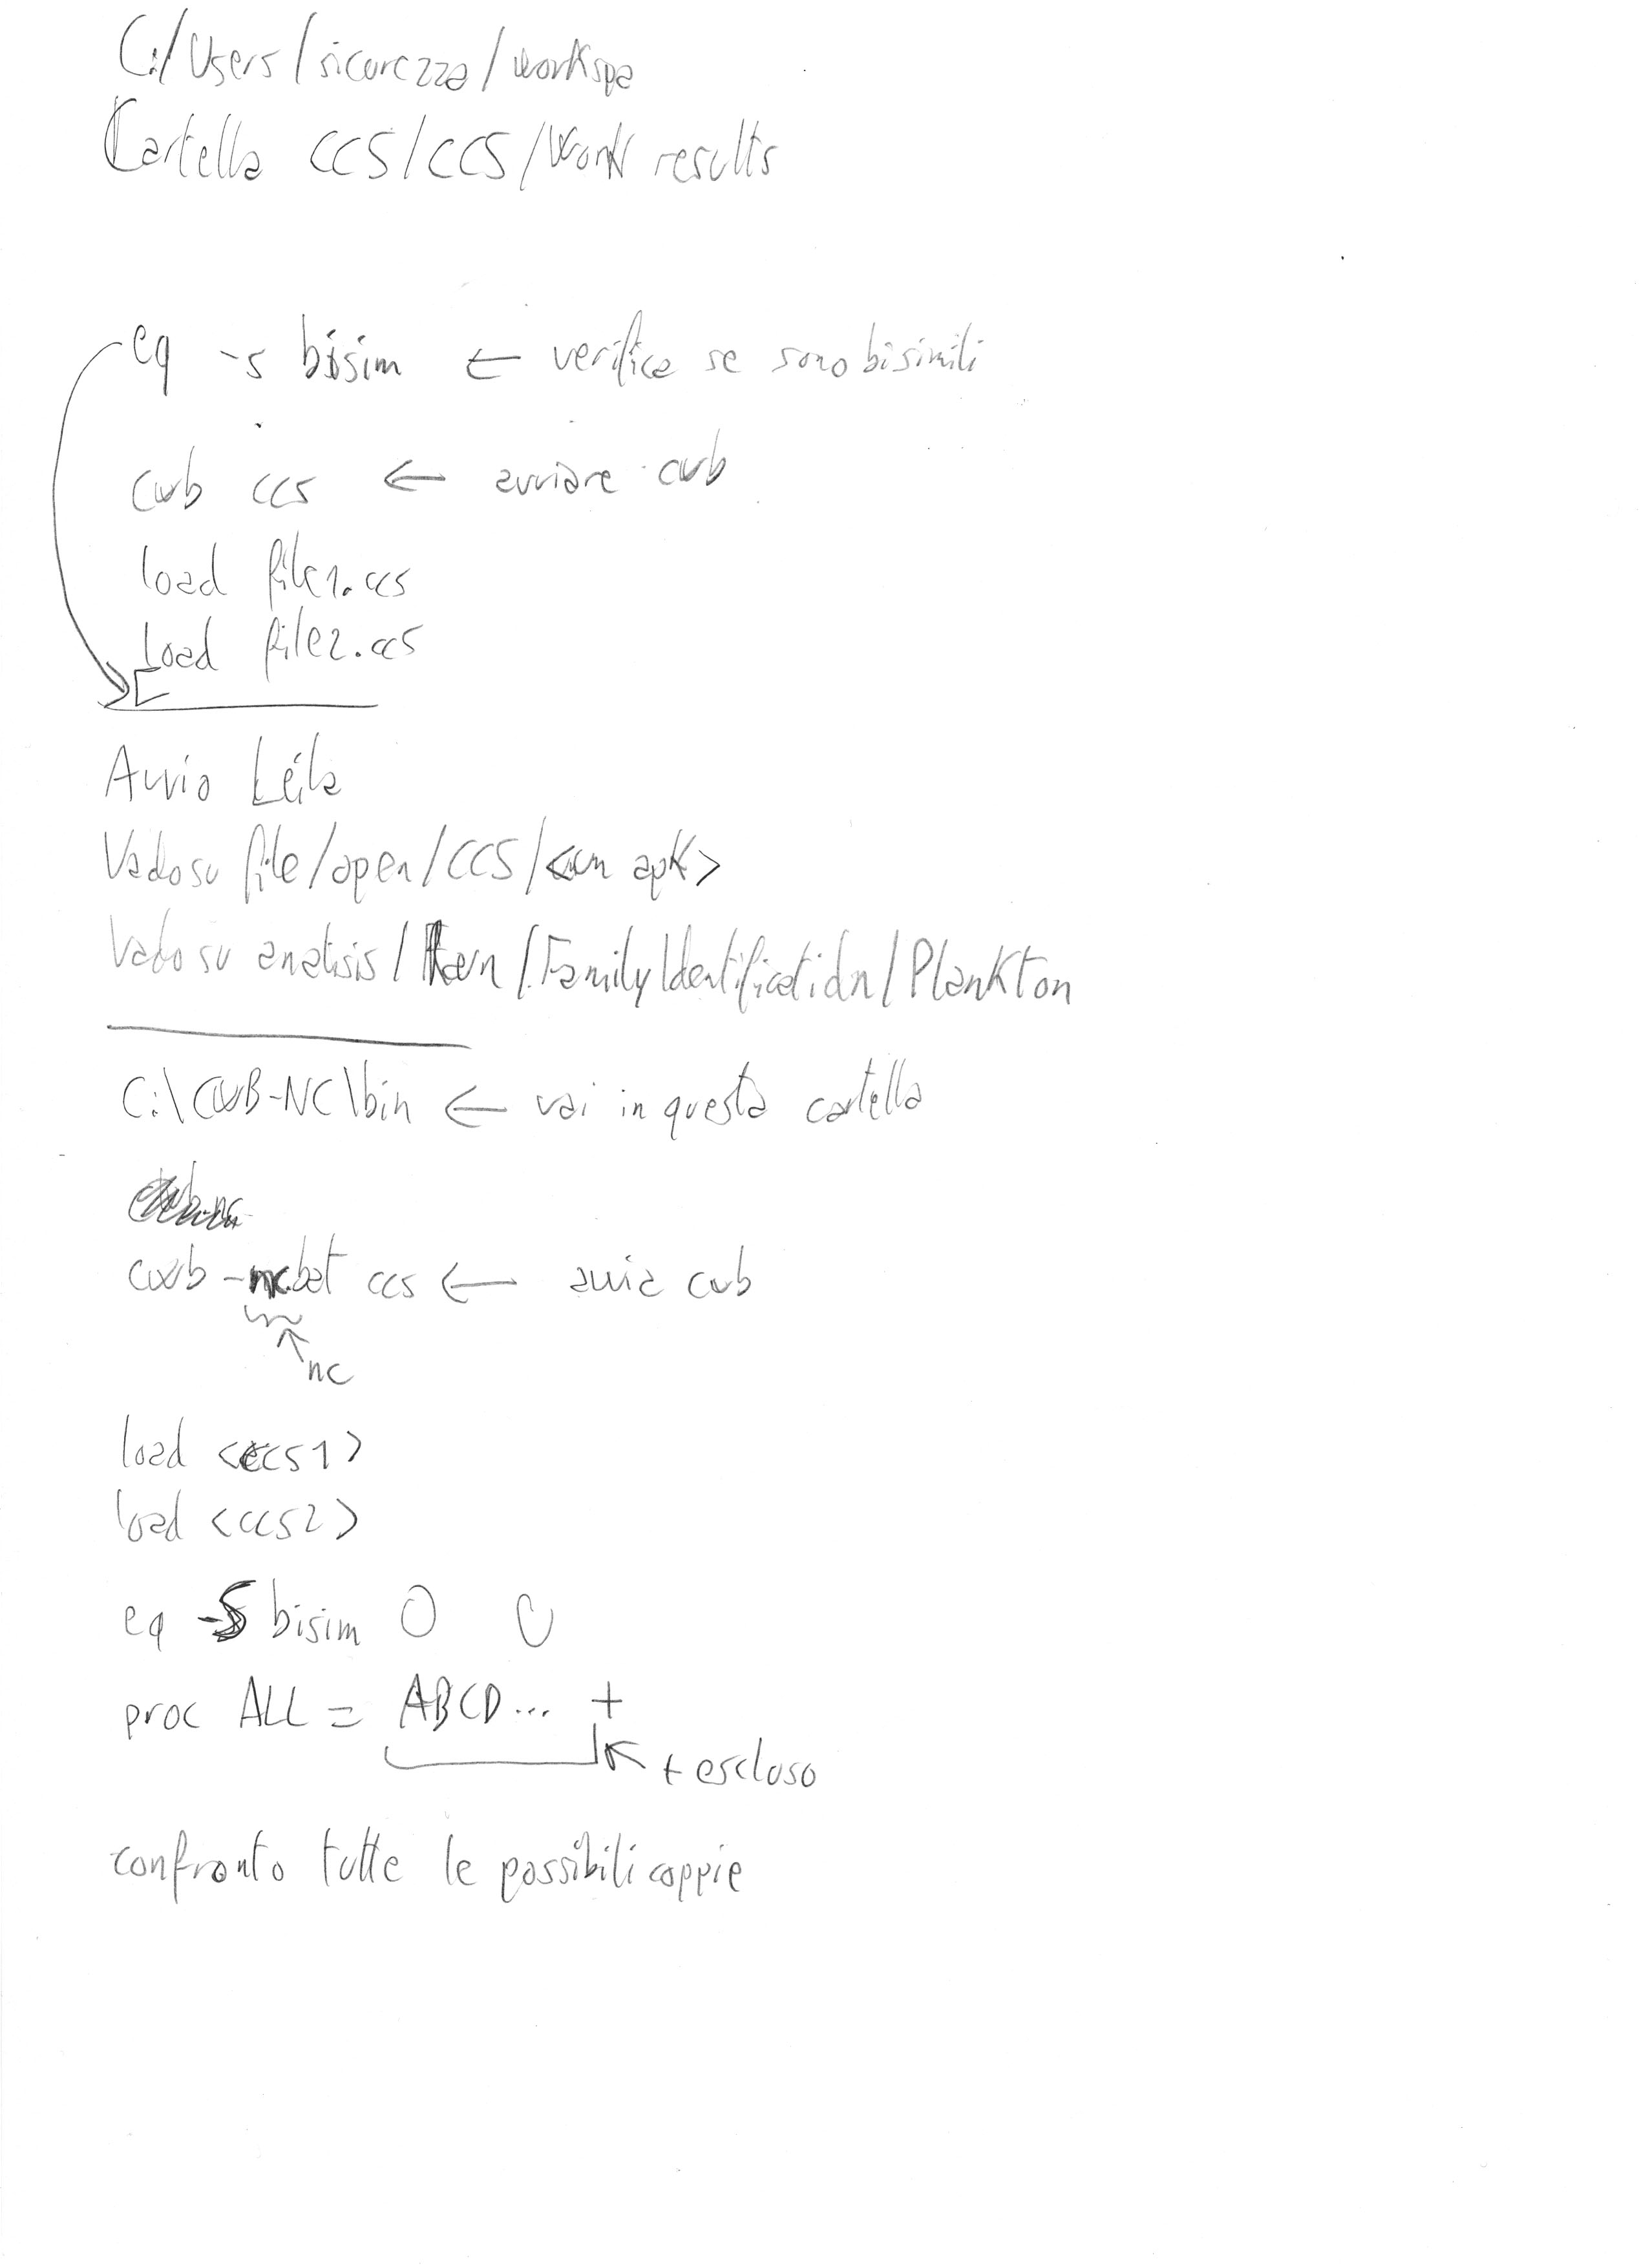 C:/Users/sicurezza/workspa
Cartella CCS/CCS/Work results
eq -s bisim ← verifica se sono bisimili
cwb ccs ← avviare cwb
load file1.ccs
load file2.ccs
Avvio Leila
Vado su file/open/CCS/<un apk>
Vado su analisis/Run/FamilyIdentification/Plankton
C:\CWB-NC\bin ← vai in questa cartella
cwb-nc.bat ccs ← avvia cwb
nc
load <ccs1>
load <ccs2>
eq -S bisim
proc ALL = ABCD... +
+ escluso
confronto tutte le possibili coppie